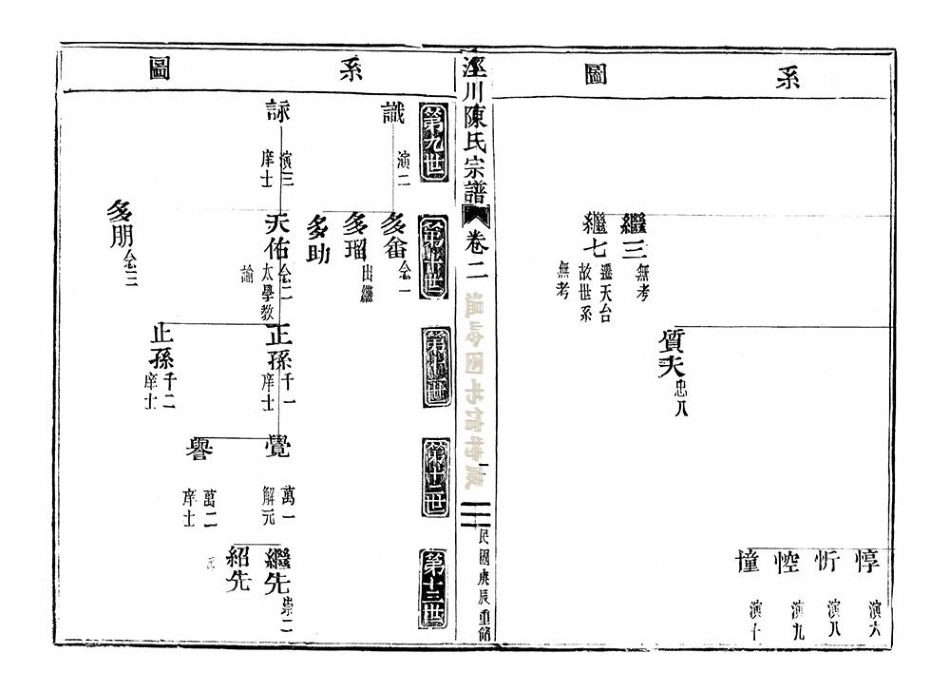 系圖
繼三
無考
繼七
遷天台
故世系
無考
質夫
忠八
惇
演六
忻
演八
悾
演九
憧
演十
涇川陳氏宗譜
卷二
民國庚辰重修
系圖
第九世
識
演二
詠
演三
庠士
第十世
多畬
念一
多瑠
出繼
多助
天佑
念二
太學教
諭
多朋
念三
第十一世
正孫
千一
庠士
正孫
千二
庠士
第十二世
覺
萬一
解元
譽
萬二
庠士
第十三世
繼先
崇二
紹先